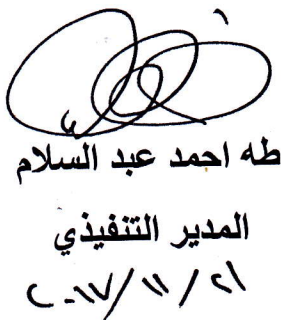 طه احمد عبد السلام
المدير التنفيذي
٢٠١٧/١١/٢١